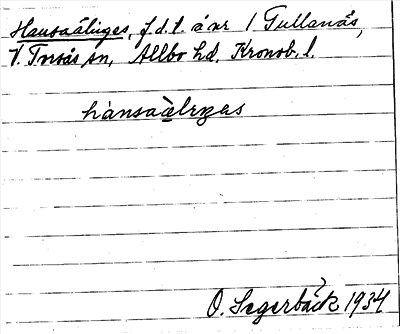 Hansaälinges, f.d.t. å nr 1 Gullanäs,
V. Torsås sn, Allbo hd, Kronob. l.
hànsaàlengas
O. Segerbäck 1934